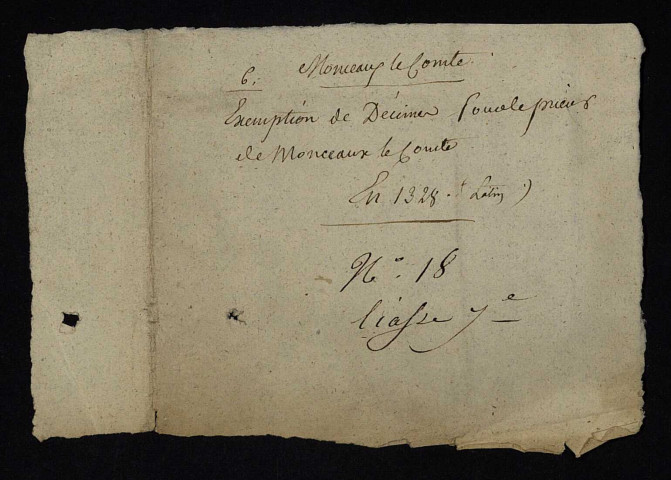 6. Monceaux le Comte.
Exemption de Décimes pour le prieur
de Monceaux le Comte
En 1328. (Latin)
N.° 18
liasse 7e